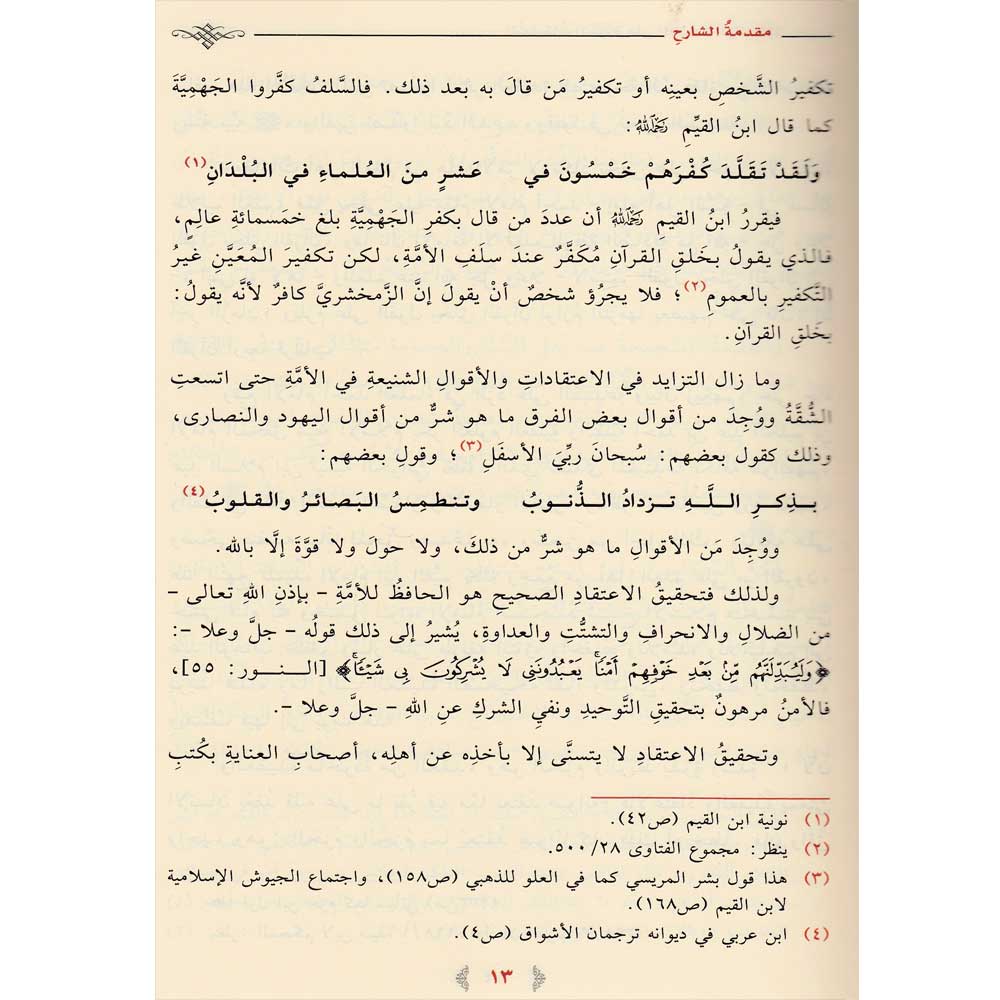 مقدمةُ الشارحِ
تكفيرُ الشَّخصِ بعينِه أو تكفيرُ مَن قالَ به بعد ذلك. فالسَّلفُ كفَّروا الجَهْمِيَّةَ
كما قال ابنُ القيِّمِ رحمه الله:
وَلَقَدْ تَقَلَّدَ كُفْرَهُمْ خَمْسُونَ في عَشرٍ منَ العُلماءِ في البُلْدَانِ(١)
فيقررُ ابنُ القيمِ رحمه الله أن عددَ من قال بكفرِ الجَهْمِيَّةِ بلغ خمَسمائةِ عالِمٍ،
فالذي يقولُ بخَلقِ القرآنِ مُكَفَّرٌ عندَ سلَفِ الأمَّةِ، لكن تكفيرَ المُعَيَّنِ غيرُ
التَّكفيرِ بالعمومِ(٢)؛ فلا يجرُؤ شخصٌ أنْ يقولَ إنَّ الزَّمخشريَّ كافرٌ لأنَّه يقولُ:
بخَلقِ القرآنِ.
وما زال التزايد في الاعتقاداتِ والأقوالِ الشنيعةِ في الأمَّةِ حتى اتسعتِ
الشُّقَّةُ ووُجِدَ من أقوال بعض الفرق ما هو شرٌّ من أقوال اليهود والنصارى،
وذلك كقول بعضهم: سُبحانَ ربِّيَ الأسفَلِ(٣)؛ وقولِ بعضهم:
بـذِكـرِ اللَّـهِ تـزدادُ الـذُّنـوبُ وتنطمِسُ البَصائرُ والقلوبُ(٤)
ووُجِدَ مَن الأقوالِ ما هو شرٌّ من ذلكَ، ولا حولَ ولا قوَّةَ إلَّا بالله.
ولذلك فتحقيقُ الاعتقادِ الصحيحِ هو الحافظُ للأمَّةِ - بإذنِ اللهِ تعالى -
من الضلالِ والانحرافِ والتشتُّتِ والعداوةِ، يُشيرُ إلى ذلك قولُه - جلَّ وعلا -:
﴿وَلَيُبَدِّلَنَّهُم مِّنۢ بَعْدِ خَوْفِهِمْ أَمْنًاۚ يَعْبُدُونَنِى لَا يُشْرِكُونَ بِى شَيْـًٔاۚ﴾ [الـنـور: ٥٥]،
فالأمنُ مرهونٌ بتحقيقِ التَّوحيدِ ونفيِ الشركِ عنِ اللهِ - جلَّ وعلا -.
وتحقيقُ الاعتقادِ لا يتسنَّى إلا بأخذِه عن أهلِه، أصحابِ العنايةِ بكُتبِ
(١) نونية ابن القيم (ص٤٢).
(٢) ينظر: مجموع الفتاوى ٥٠٠/٢٨.
(٣) هذا قول بشر المريسي كما في العلو للذهبي (ص١٥٨)، واجتماع الجيوش الإسلامية
لابن القيم (ص١٦٨).
(٤) ابن عربي في ديوانه ترجمان الأشواق (ص٤).
١٣